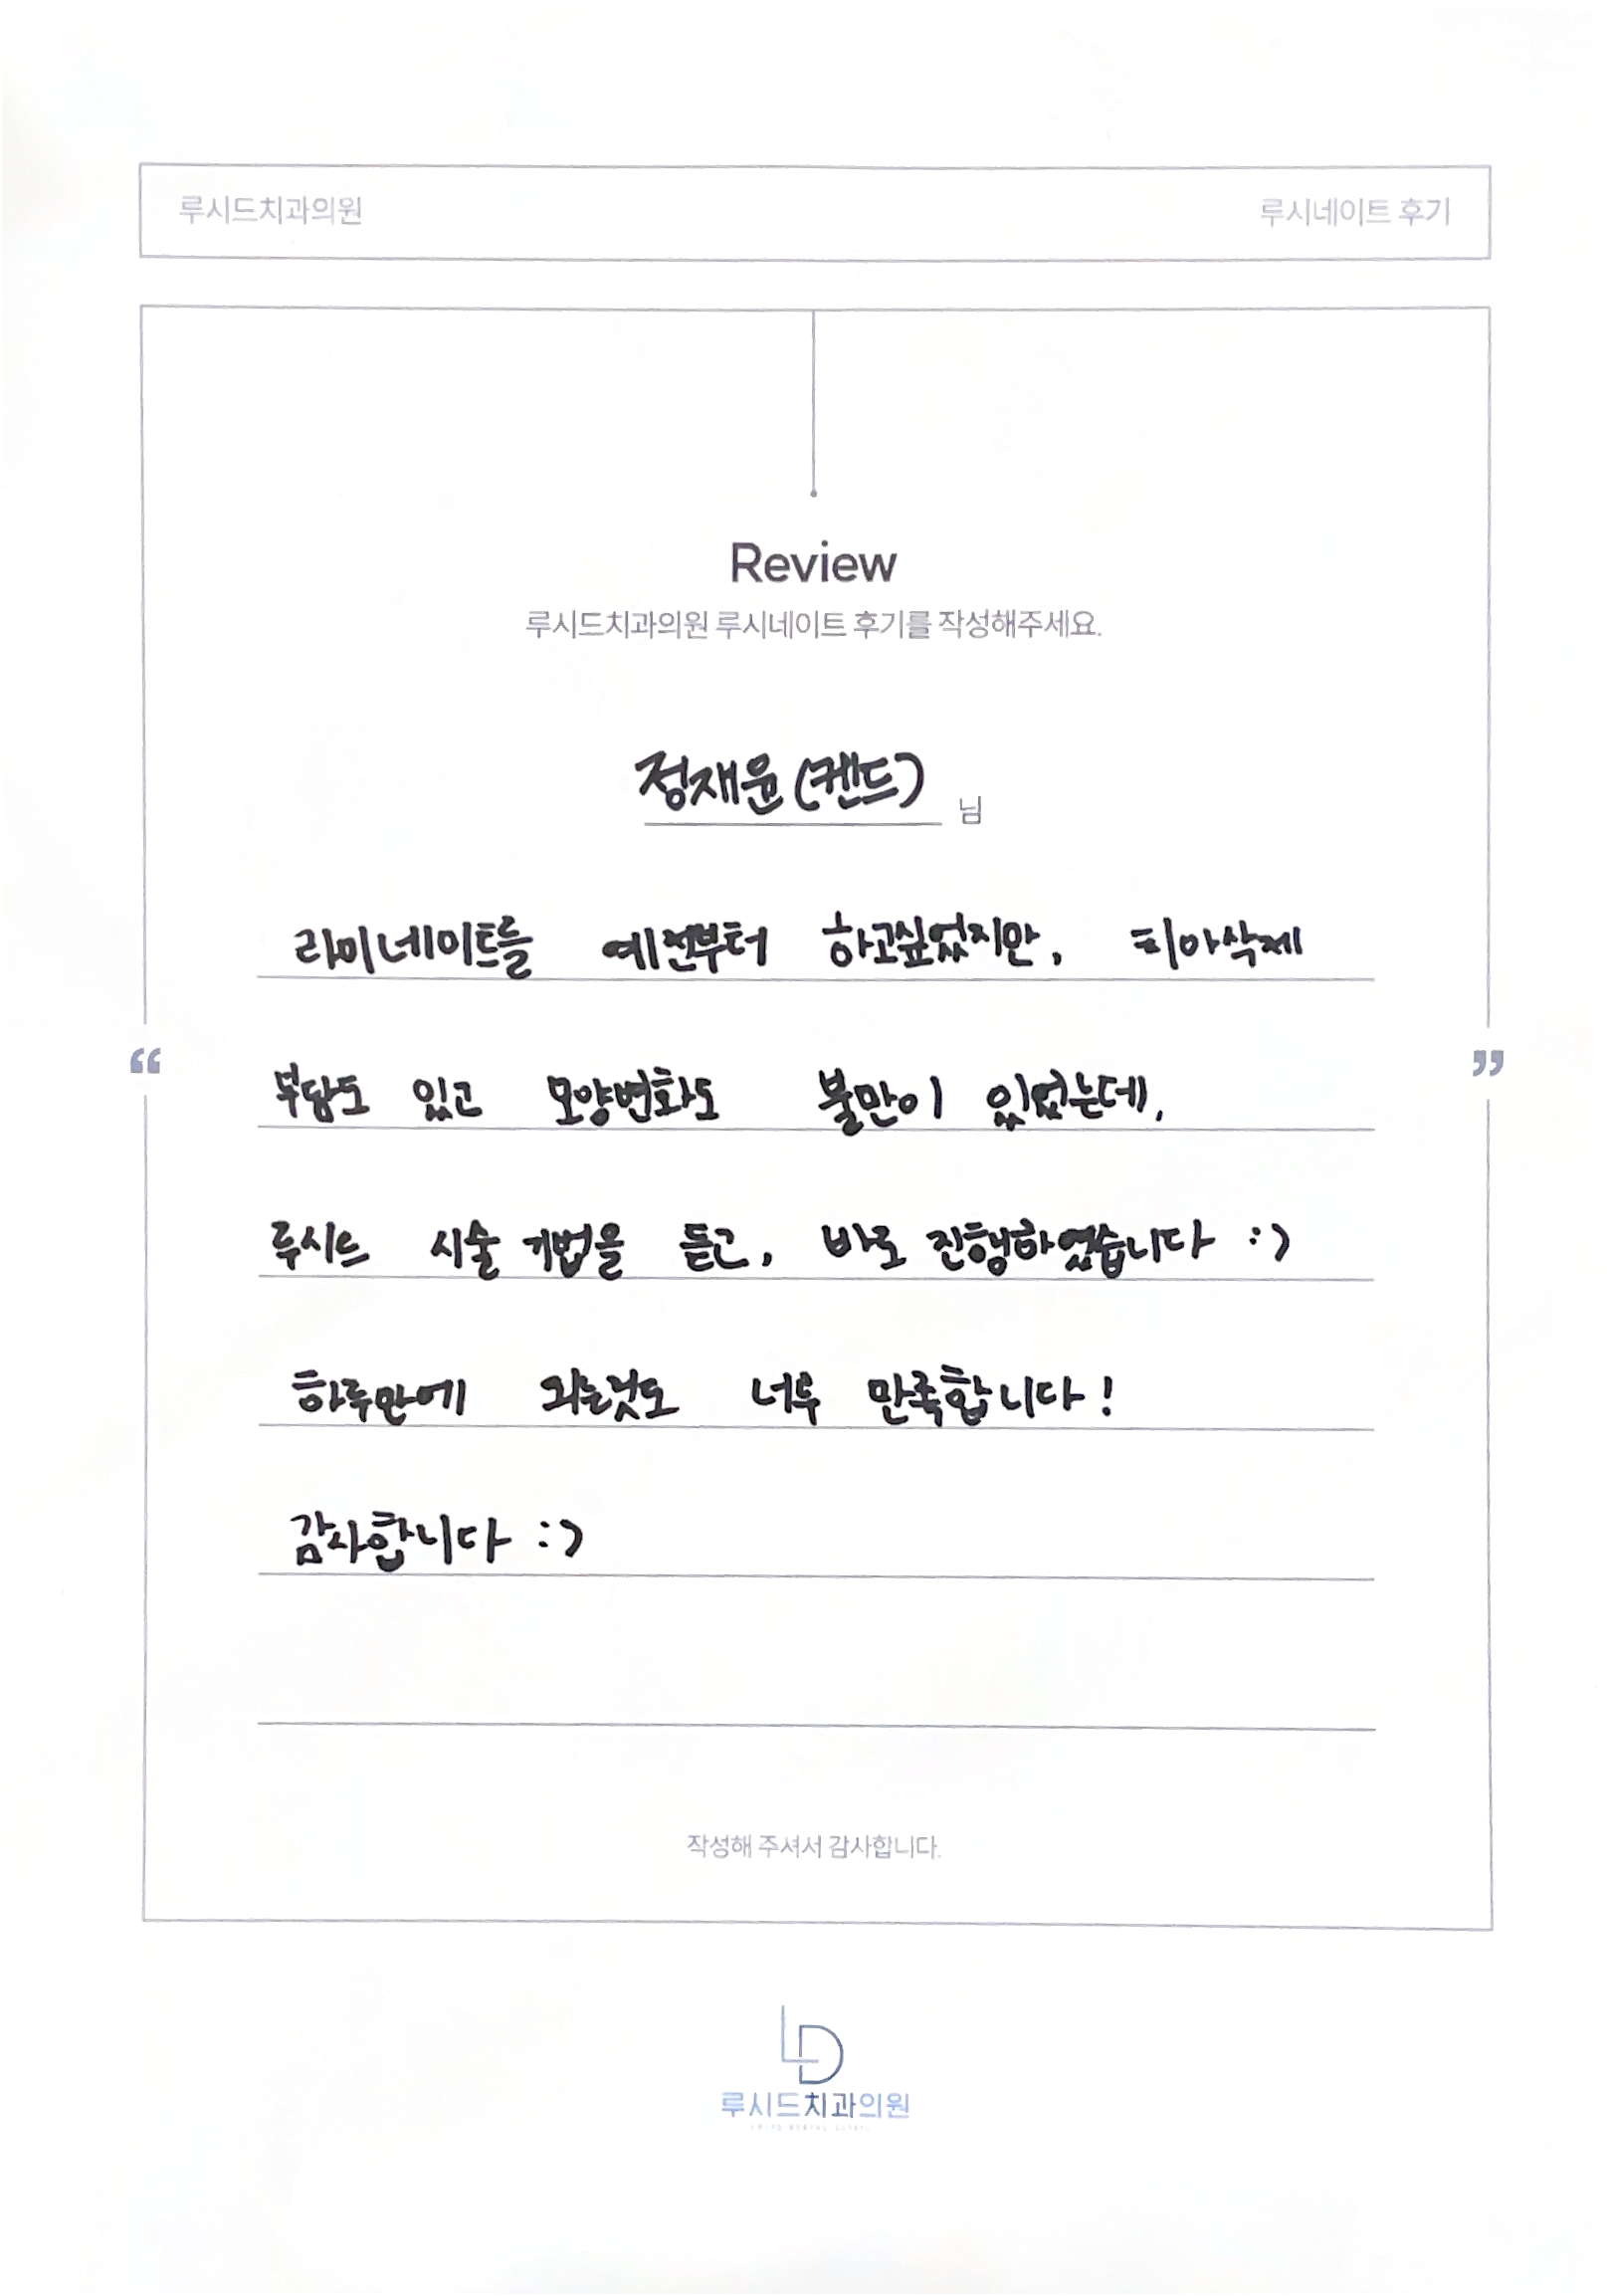 루시드치과의원
루시네이트 후기
Review
루시드치과의원 루시네이트 후기를 작성해주세요.
정재윤(켄드) 님
라미네이트를 예전부터 하고싶었지만, 치아삭제
“ 부담도 있고 모양변화도 불만이 있었는데, ”
루시드 시술 기법을 듣고, 바로 진행하였습니다 :)
하루만에 되는것도 너무 만족합니다!
감사합니다 :)
작성해 주셔서 감사합니다.
LD
루시드치과의원